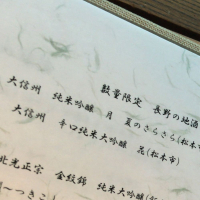 数量限定 長野の地酒
大信州 純米吟醸 月 夏のさらさら(松本市
大信州 辛口純米大吟醸 (松本市)
北光正宗 金紋錦 純米大吟醸
一つき